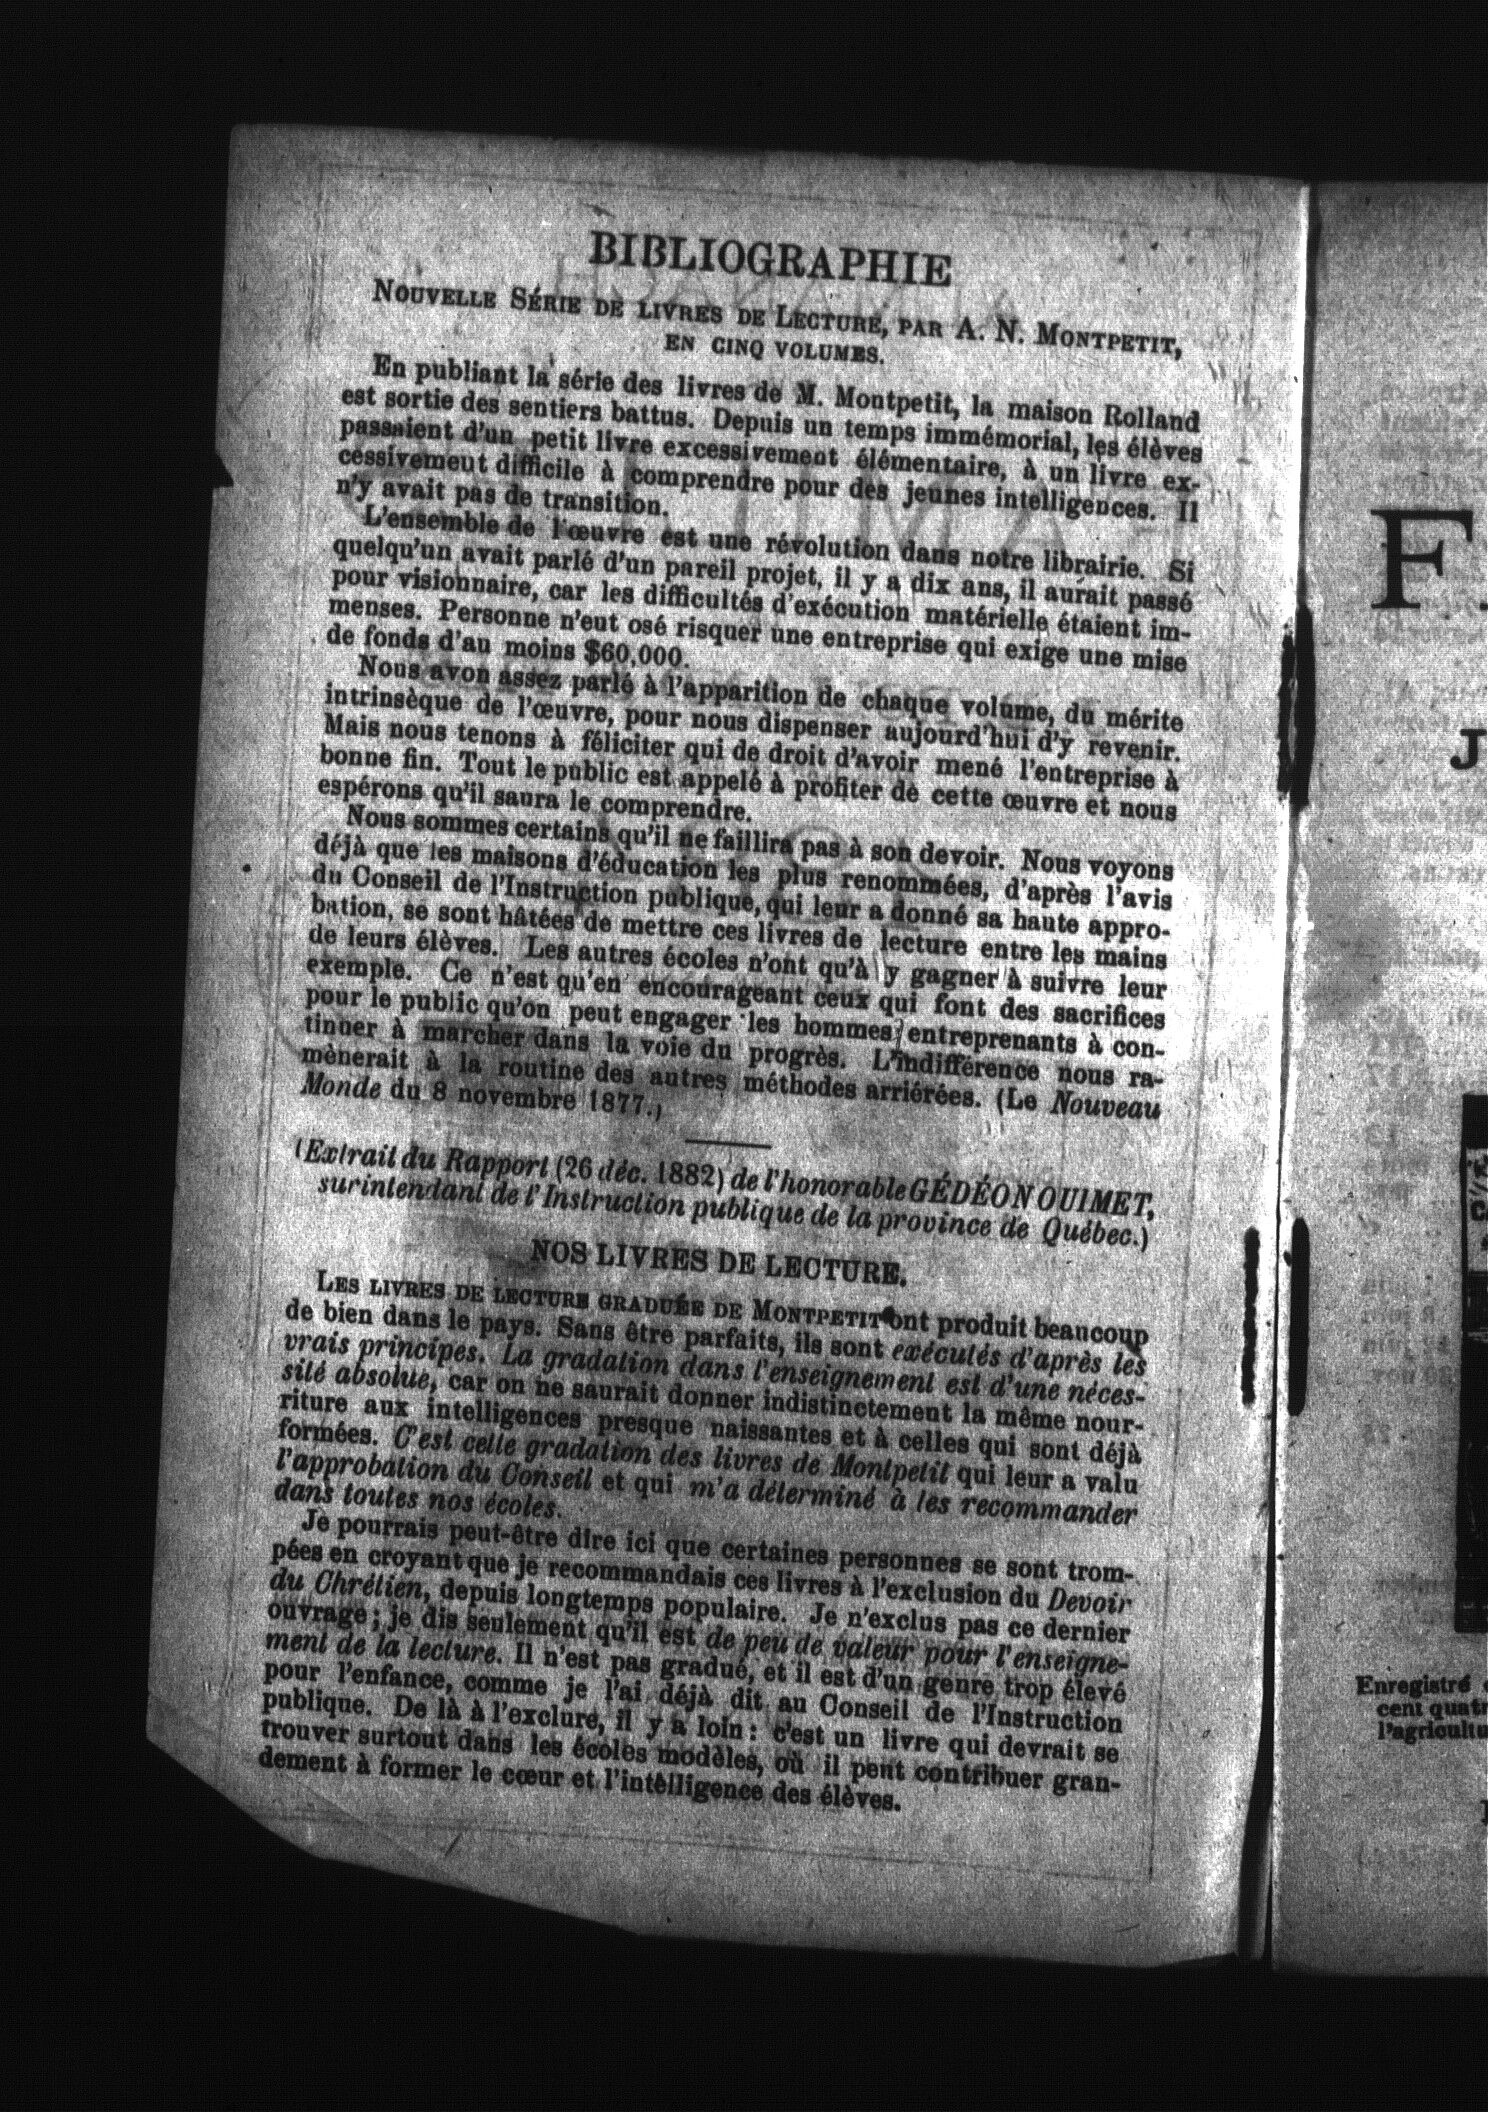 BIBLIOGRAPHIE
NOUVELLE SÉRIE DE LIVRES DE LECTURE, PAR A. N. MONTPETIT,
EN CINQ VOLUMES.
En publiant la série des livres de M. Montpetit, la maison Rolland
est sortie des sentiers battus. Depuis un temps immémorial, les élèves
passaient d'un petit livre excessivement élémentaire, à un livre ex-
cessivemeut difficile à comprendre pour des jeunes intelligences. Il
n'y avait pas de transition.
L'ensemble de l'œuvre est une révolution dans notre librairie. Si
quelqu'un avait parlé d'un pareil projet, il y a dix ans, il aurait passé
pour visionnaire, car les difficultés d'exécution matérielle étaient im-
menses. Personne n'eut osé risquer une entreprise qui exige une mise
de fonds d'au moins $60,000.
Nous avon assez parlé à l'apparition de chaque volume, du mérite
intrinsèque de l'œuvre, pour nous dispenser aujourd'hui d'y revenir.
Mais nous tenons à féliciter qui de droit d'avoir mené l'entreprise à
bonne fin. Tout le public est appelé à profiter de cette œuvre et nous
espérons qu'il saura le comprendre.
Nous sommes certains qu'il ne faillira pas à son devoir. Nous voyons
déjà que les maisons d'éducation les plus renommées, d'après l'avis
du Conseil de l'Instruction publique, qui leur a donné sa haute appro-
bation, se sont hâtées de mettre ces livres de lecture entre les mains
de leurs élèves. Les autres écoles n'ont qu'à y gagner à suivre leur
exemple. Ce n'est qu'en encourageant ceux qui font des sacrifices
pour le public qu'on peut engager les hommes entreprenants à con-
tinuer à marcher dans la voie du progrès. L'indifférence nous ra-
mènerait à la routine des autres méthodes arriérées. (Le Nouveau
Monde du 8 novembre 1877.)
(Extrait du Rapport (26 déc. 1882) de l'honorable GÉDÉON OUIMET,
surintendant de l'Instruction publique de la province de Québec.)
NOS LIVRES DE LECTURE.
LES LIVRES DE LECTURE GRADUÉE DE MONTPETIT ont produit beaucoup
de bien dans le pays. Sans être parfaits, ils sont exécutés d'après les
vrais principes. La gradation dans l'enseignement est d'une néces-
sité absolue, car on ne saurait donner indistinctement la même nour-
riture aux intelligences presque naissantes et à celles qui sont déjà
formées. C'est cette gradation des livres de Montpetit qui leur a valu
l'approbation du Conseil et qui m'a déterminé à les recommander
dans toutes nos écoles.
Je pourrais peut-être dire ici que certaines personnes se sont trom-
pées en croyant que je recommandais ces livres à l'exclusion du Devoir
du Chrétien, depuis longtemps populaire. Je n'exclus pas ce dernier
ouvrage ; je dis seulement qu'il est de peu de valeur pour l'enseigne-
ment de la lecture. Il n'est pas gradué, et il est d'un genre trop élevé
pour l'enfance, comme je l'ai déjà dit au Conseil de l'Instruction
publique. De là à l'exclure, il y a loin : c'est un livre qui devrait se
trouver surtout dans les écoles modèles, où il peut contribuer gran-
dement à former le cœur et l'intelligence des élèves.
F
J
Enregistré
cent quatr
l'agricultu